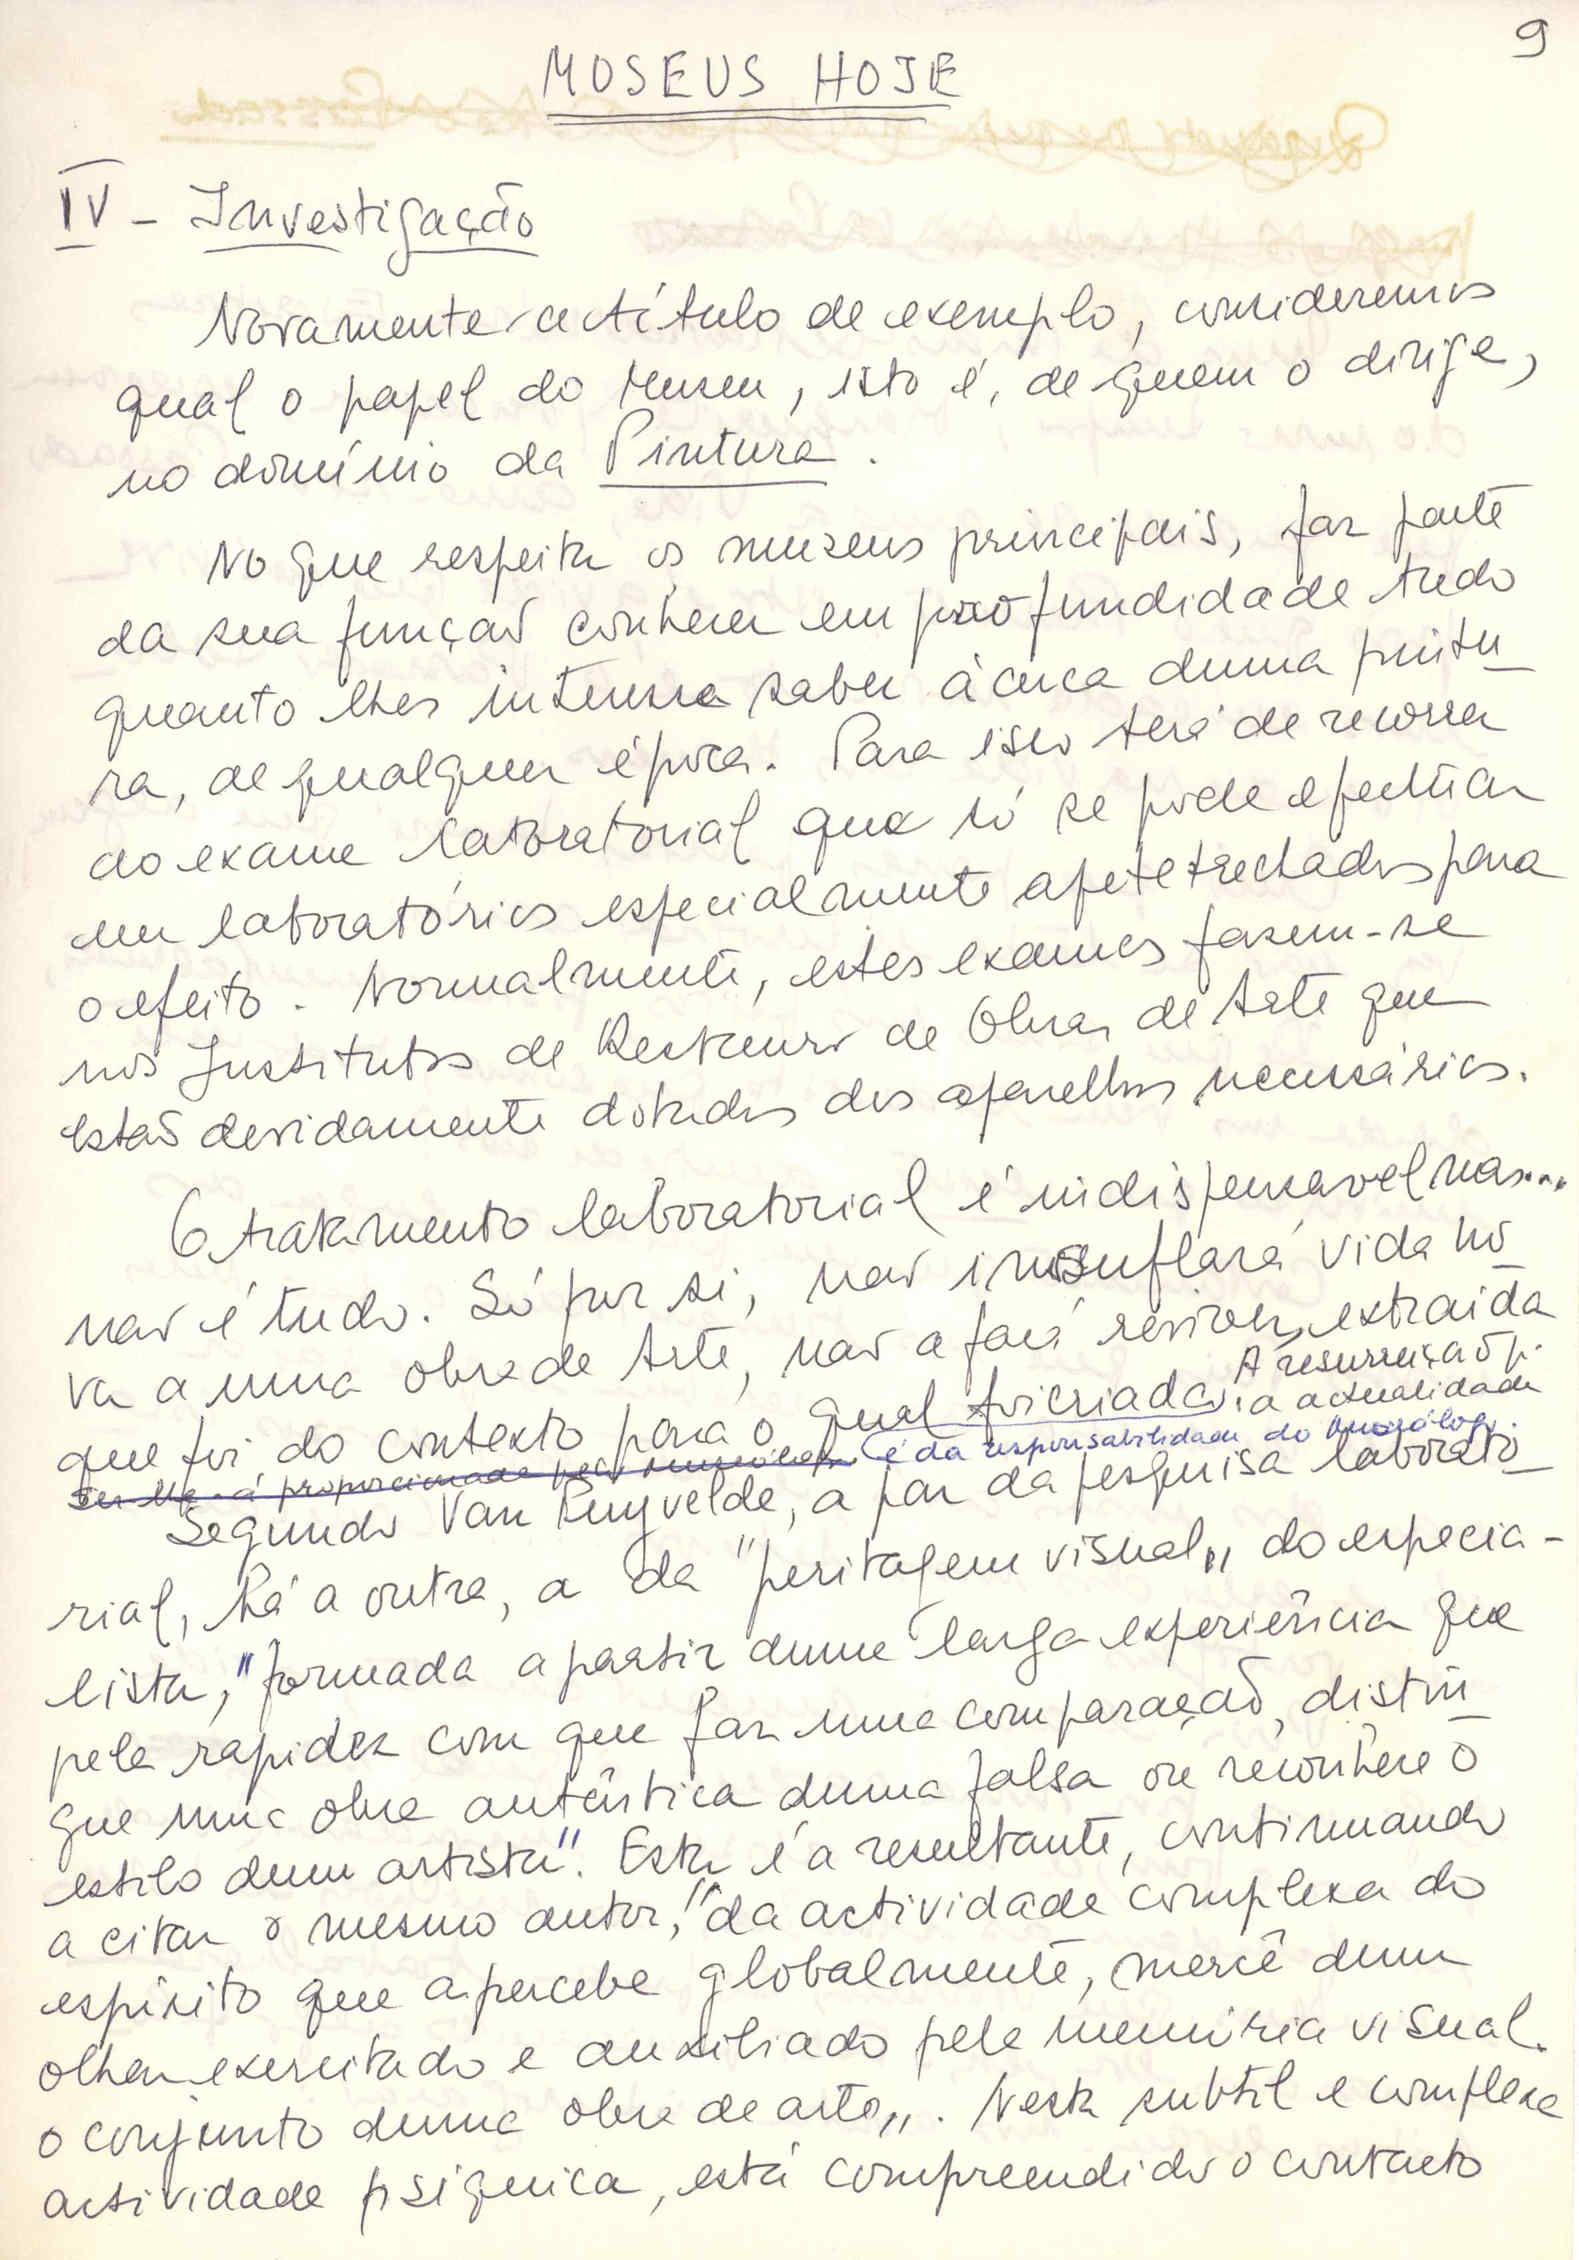 9
MUSEUS HOJE
IV - Investigação
Novamente a título de exemplo, consideremos
qual o papel do Museu, isto é, de quem o dirige,
no domínio da Pintura.
No que respeita os museus principais, faz parte
da sua função conhecer em profundidade tudo
quanto lhes interessa saber àcerca duma pintu-
ra, de qualquer época. Para isso terá de recorrer
ao exame laboratorial que só se pode efectuar
em laboratórios especialmente apetetrechados para
o efeito. Normalmente, estes exames fazem-se
nos Institutos de Restauro de Obras de Arte que
estão devidamente dotados dos aparelhos necessários.
O tratamento laboratorial é indispensavel mas...
não é tudo. Só por si, não insuflará vida no-
va a uma obra de Arte, não a fará reviver, extraida
que foi do contexto para o qual foi criada. A resurreição p.
a actualidade
ser-lhe-á proporcionada pelo museólogo é da responsabilidade do Museólogo.
Segundo Van Puyvelde, a par da pesquisa laborato-
rial, há a outra, a da "peritagem visual„ do especia-
lista, "formada a partir duma larga experiência que
pela rapidez com que faz uma comparação, distin-
gue uma obra autêntica duma falsa ou reconhece o
estilo dum artista". Esta é a resultante, continuando
a citar o mesmo autor, "da actividade complexa do
espírito que apercebe globalmente, mercê dum
olhar exercitado e auxiliado pela memória visual.
o conjunto duma obra de arte„. Nesta subtil e complexa
actividade psíquica, está compreendido o contacto